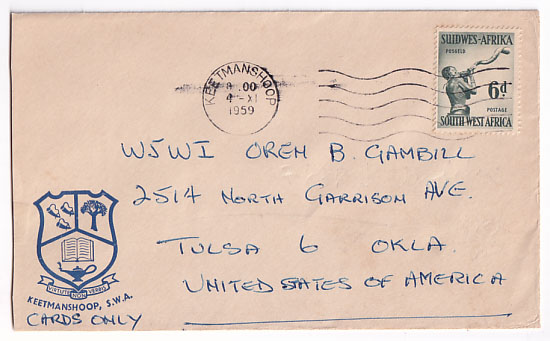 SUIDWES-AFRIKA
POSSEËL
6d
POSTAGE
SOUTH WEST AFRICA
KEETMANSHOOP
8.00
4-XI
1959
W5WI OREM B. GAMBILL
2514 NORTH GARRISON AVE.
TULSA 6 OKLA.
UNITED STATES OF AMERICA
VIRTUTE NON VERBIS
KEETMANSHOOP, S.W.A.
CARDS ONLY